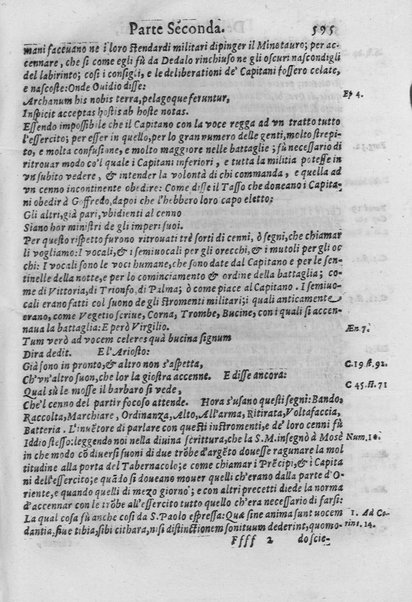 Parte Seconda. 595
mani faceuano ne i loro stendardi militari dipinger il Minotauro; per ac-
cennare, che sì come egli fù da Dedalo rinchiuso ne gli oscuri nascondigli
del labirinto; così i consigli, e le deliberationi de' Capitani fossero celate,
e nascoste: Onde Ouidio disse:
Archanum his nobis terra, pelagoque feruntur, Ep 4.
Inspicit acceptas hostis ab hoste notas.
Essendo impossibile che il Capitano con la voce regga ad vn tratto tutto
l'essercito; per esser in quello, per lo gran numero delle genti, molto strepi-
to, e molta confusione, e molto maggiore nelle battaglie; fù necessario di
ritrouar modo co'l quale i Capitani inferiori, e tutta la militia potesse in
vn subito vedere, & intender la volontà di chi commanda, e quella ad
vn cenno incontinente obedire: Come disse il Tasso che doneano i Capita-
ni obedir à Goffredo, dapoi che l'hebbero loro capo eletto;
Gli altri, già pari, vbidienti al cenno
Siano hor ministri de gl'imperi suoi.
Per questo rispetto furono ritrouati trè sorti di cenni, ò segni, che chiamar
li vogliamo: I vocali, & i semiuocali per gli orecchi, & i mutoli per gli oc
chi: I vocali sono le voci humane, che sono date dal Capitano e per le sen-
tinelle della notte, e per lo cominciamento & ordine della battaglia; co-
me di Vittoria, di Trionfo, di Palma; ò come piace al Capitano. I semiuo-
cali erano fatti col suono de gli stromenti militari; i quali anticamente
erano, come Vegetio scriue, Corna, Trombe, Bucine, con i quali si accen-
naua la battaglia: E però Virgilio. Æn. 7.
Tum verò ad vocem celeres quà bucina signum
Dira dedit. E l'Ariosto:
Già sono in pronto, & altro non s'aspetta, C. 19 st. 92.
Ch'vn'altro suon, che lor la giostra accenne. E disse ancora:
Qual sù le mosse il barbaro si vede, C 45. st. 71
Che'l cenno del partir focoso attende. Hora s'usano questi segni: Bando,
Raccolta, Marchiare, Ordinanza, Alto, All'arma, Ritirata, Voltafaccia,
Batteria. L'inuētore di parlare con questi instromenti, e de' loro cenni fù
Iddio stesso: leggendo noi nella diuina scrittura, che la S.M. insegnò à Mosè Num. 10.
in che modo cō diuersi suoni di due trōbe d'argēto douesse ragunare la mol
titudine alla porta del Tabernacolo; e come chiamar i Prēcipi, & i Capita
ni dell'essercito; e quādo si doueano mouer quelli ch'erano dalla parte d'O-
riente, e quando quelli di mezo giorno; e con altri precetti diede la norma
d'accennar con le trōbe all'essercito tutto quello ch'era necessario di farsi:
La qual cosa fù anche così da S. Paolo espressa: Qua sine anima sunt vocem 1. Ad Co-
dantia, siue tibia, sibi cithara, nisi distinctionem sonituum dederint, quomo- rint. 14.
Ffff 2 do scie-